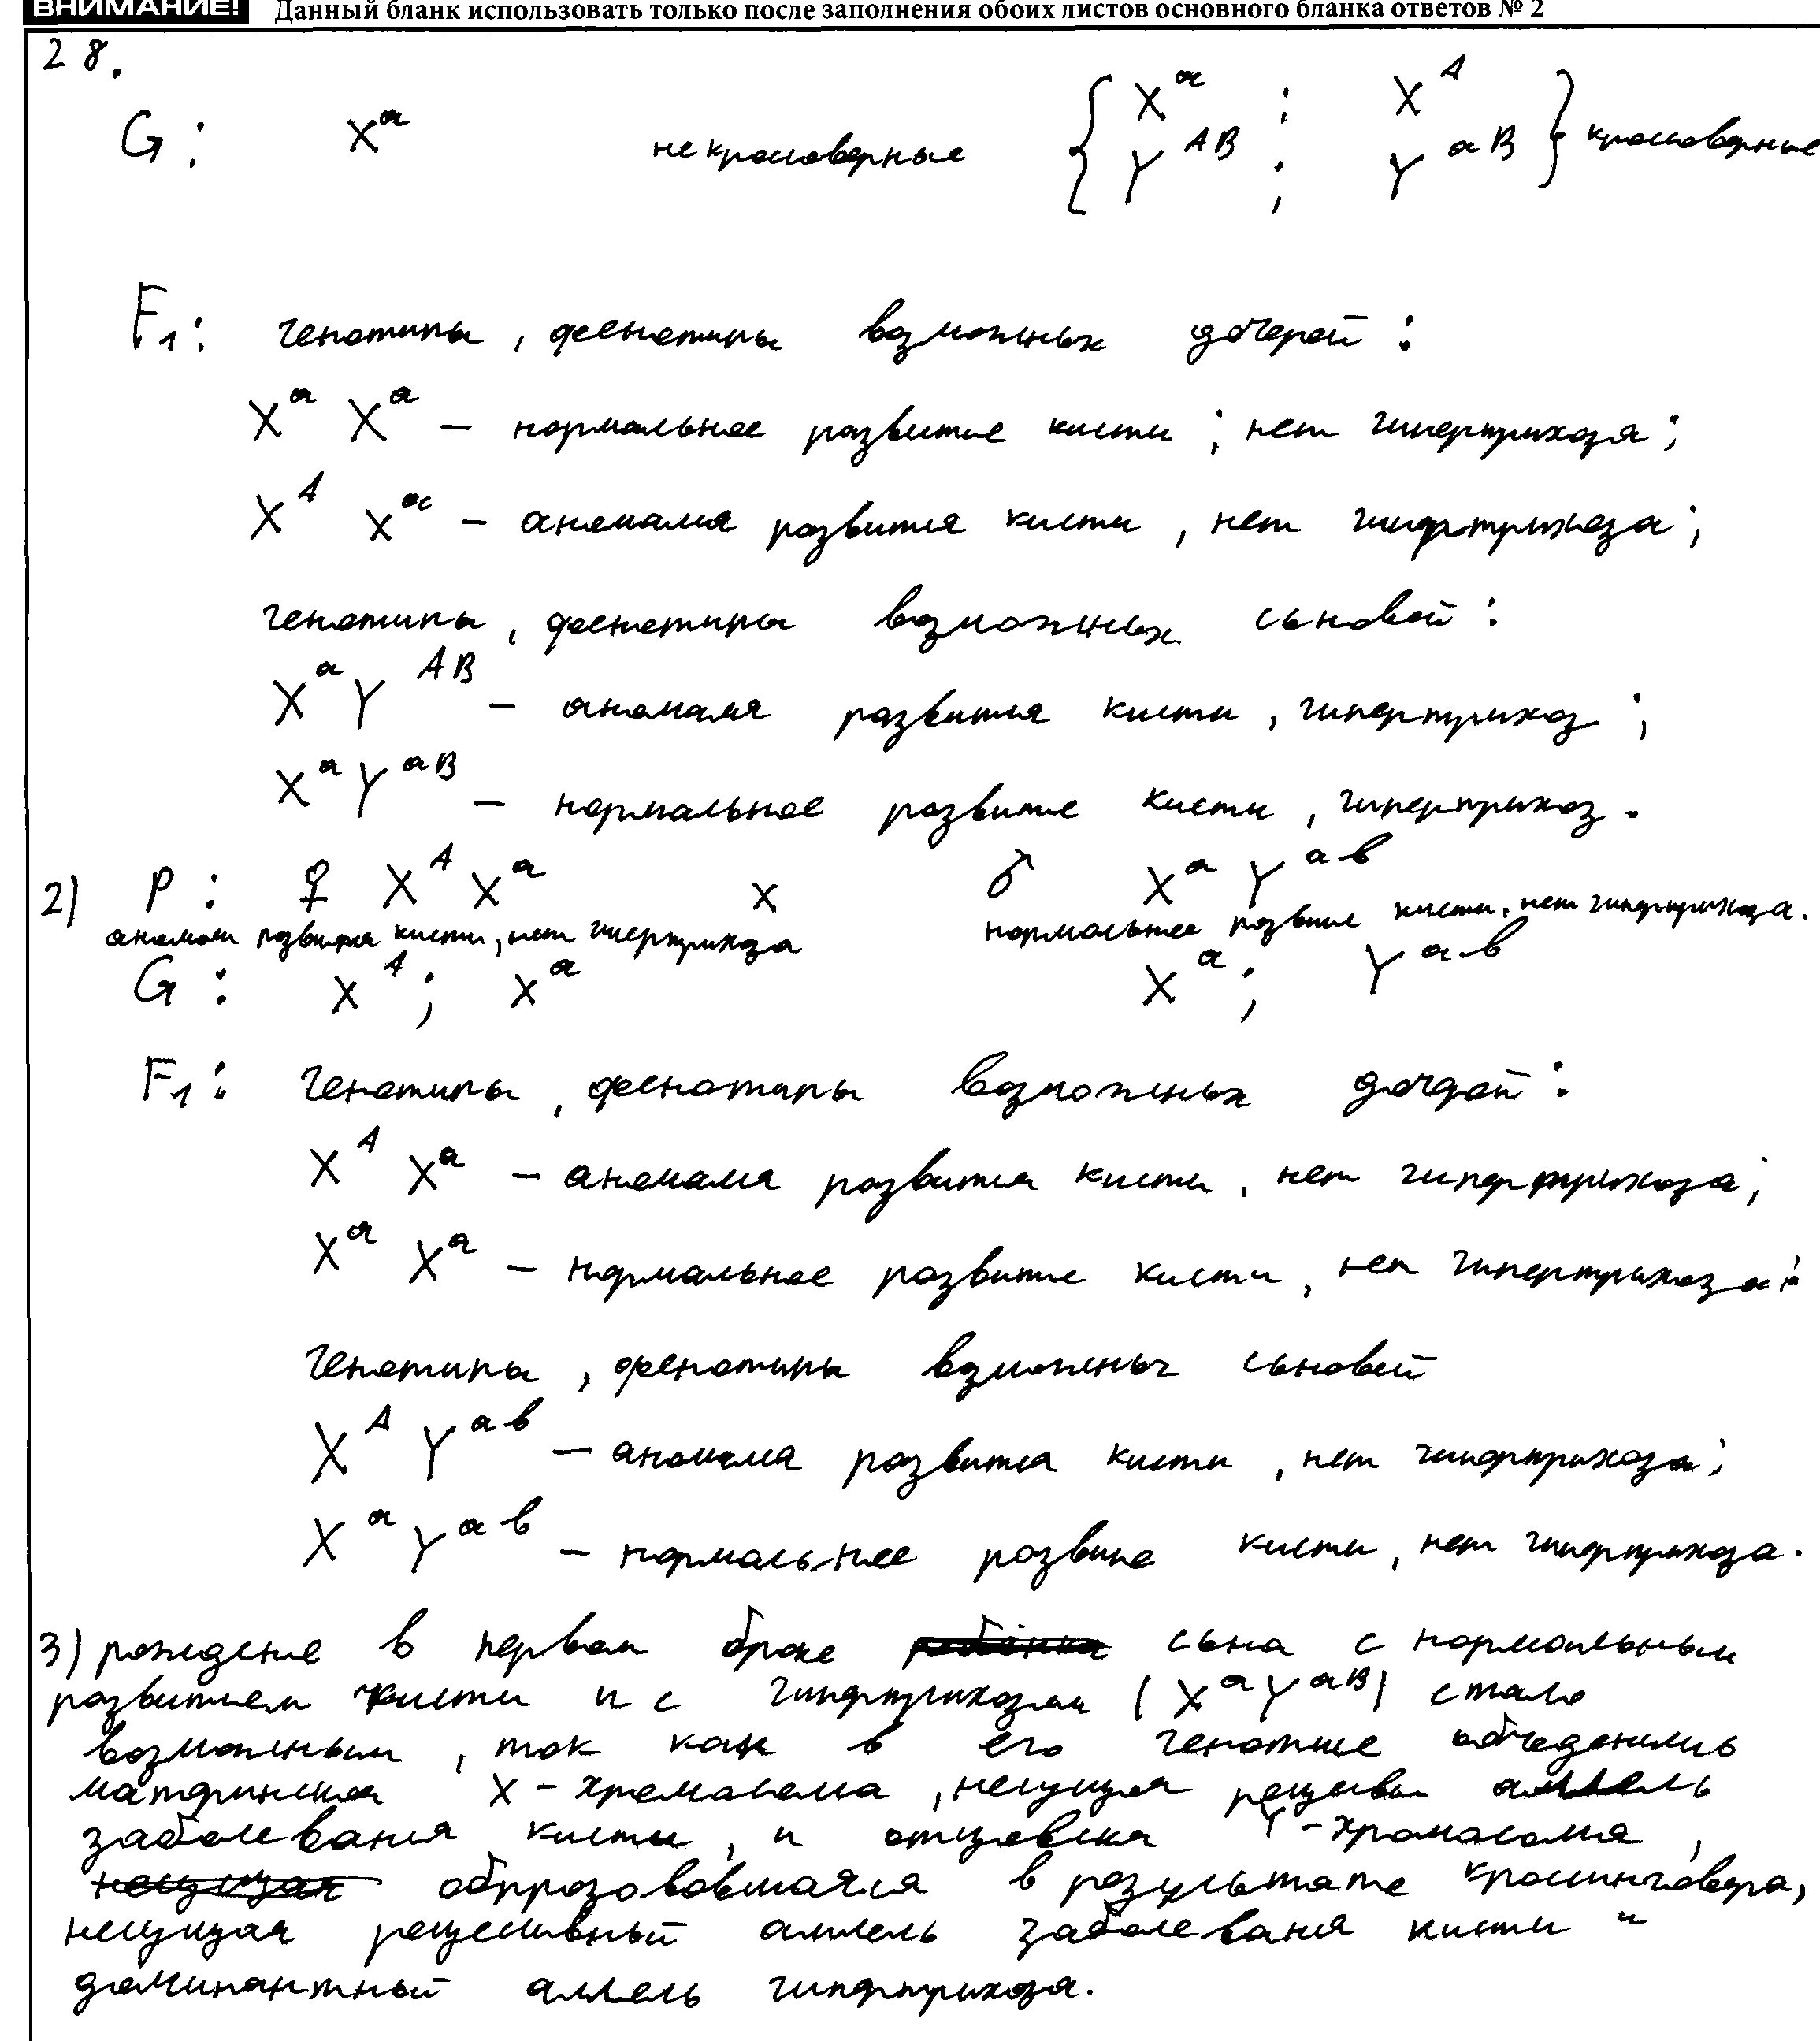 ВНИМАНИЕ! Данный бланк использовать только после заполнения обоих листов основного бланка ответов № 2
28.
G: Xᵃ некроссоверные { Xᵃ ; Xᴬ
Yᴬᴮ ; Yᵃᴮ } кроссоверные
F₁: генотипы, фенотипы возможных дочерей:
Xᵃ Xᵃ – нормальное развитие кисти; нет гипертрихоза;
Xᴬ Xᵃ – аномалия развития кисти, нет гипертрихоза;
генотипы, фенотипы возможных сыновей:
Xᵃ Yᴬᴮ – аномалия развития кисти, гипертрихоз;
Xᵃ Yᵃᴮ – нормальное развитие кисти, гипертрихоз.
2) P: ♀ Xᴬ Xᵃ x ♂ Xᵃ Yᵃᵇ
аномалия развития кисти, нет гипертрихоза нормальное развитие кисти, нет гипертрихоза.
G: Xᴬ; Xᵃ Xᵃ; Yᵃᵇ
F₁: генотипы, фенотипы возможных дочерей:
Xᴬ Xᵃ – аномалия развития кисти, нет гипертрихоза;
Xᵃ Xᵃ – нормальное развитие кисти, нет гипертрихоза;
генотипы, фенотипы возможных сыновей
Xᴬ Yᵃᵇ – аномалия развития кисти, нет гипертрихоза;
Xᵃ Yᵃᵇ – нормальное развитие кисти, нет гипертрихоза.
3) рождение в первом браке сына с нормальным
развитием кисти и с гипертрихозом (XᵃYᵃᴮ) стало
возможным, так как в его генотипе объеденились
материнская X-хромосома, несущая рецессивн аллель
заболевания кисти, и отцовская Y-хромосома,
несущая образовавшаяся в результате кроссинговера,
несущая рецессивный аллель заболевания кисти и
доминантный аллель гипертрихоза.